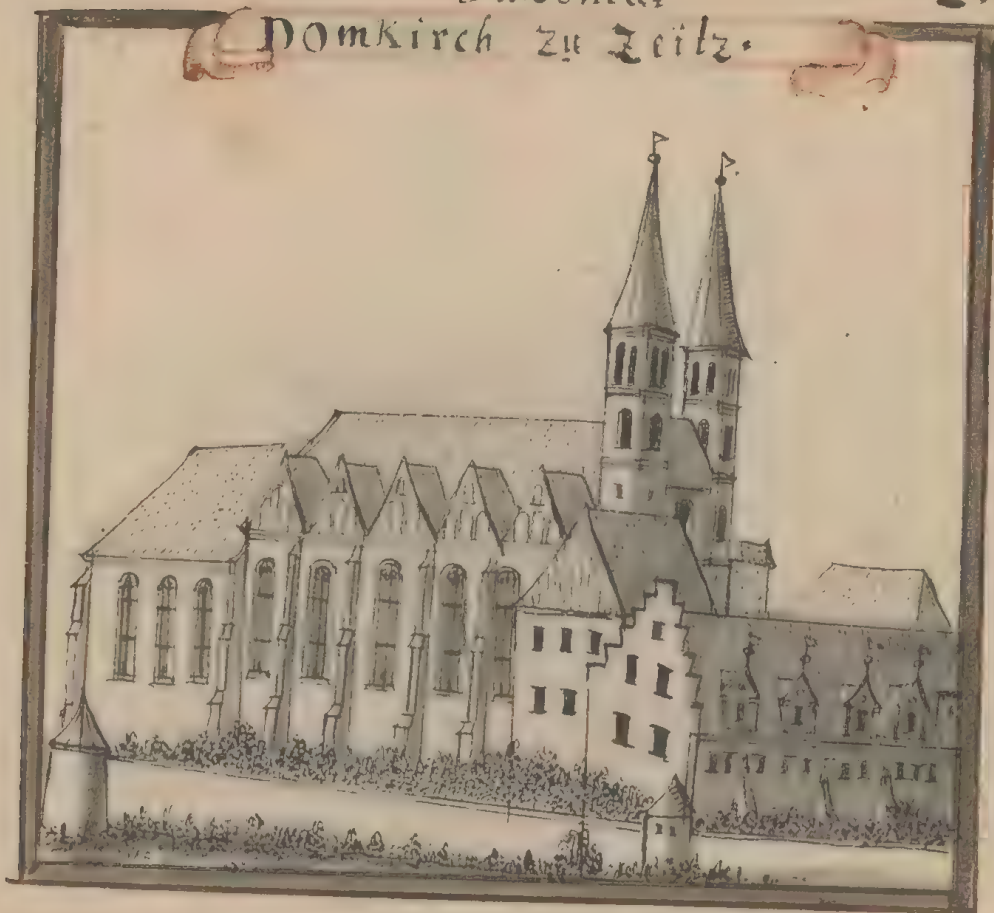 Domkirch zu Zeitz.